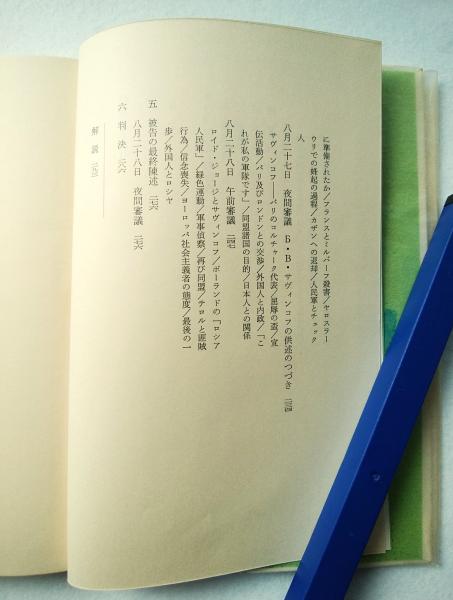 に準備されたか/フランスとミルバーフ殺害/ヤロスラー
ウリでの蜂起の過程/カザンへの退却/人民軍とチェック
人
八月二十七日 夜間審議 Б・В・サヴィンコフの供述のつづき 二三四
サヴィンコフ――パリのコルチャーク代表/屈辱の盃/宣
伝活動/パリ及びロンドンとの交渉/外国人と内政/「こ
れが私の軍隊です」/同盟諸国の目的/日本人との関係
八月二十八日 午前審議 二四七
ロイド・ジョージとサヴィンコフ/ポーランドの「ロシア
人民軍」/緑色運動/軍事偵察/再び同盟/テロルと匪賊
行為/信念喪失/ヨーロッパ社会主義者の態度/最後の一
歩/外国人とロシヤ
五 被告の最終陳述
八月二十八日 夜間審議
六 判決
解説